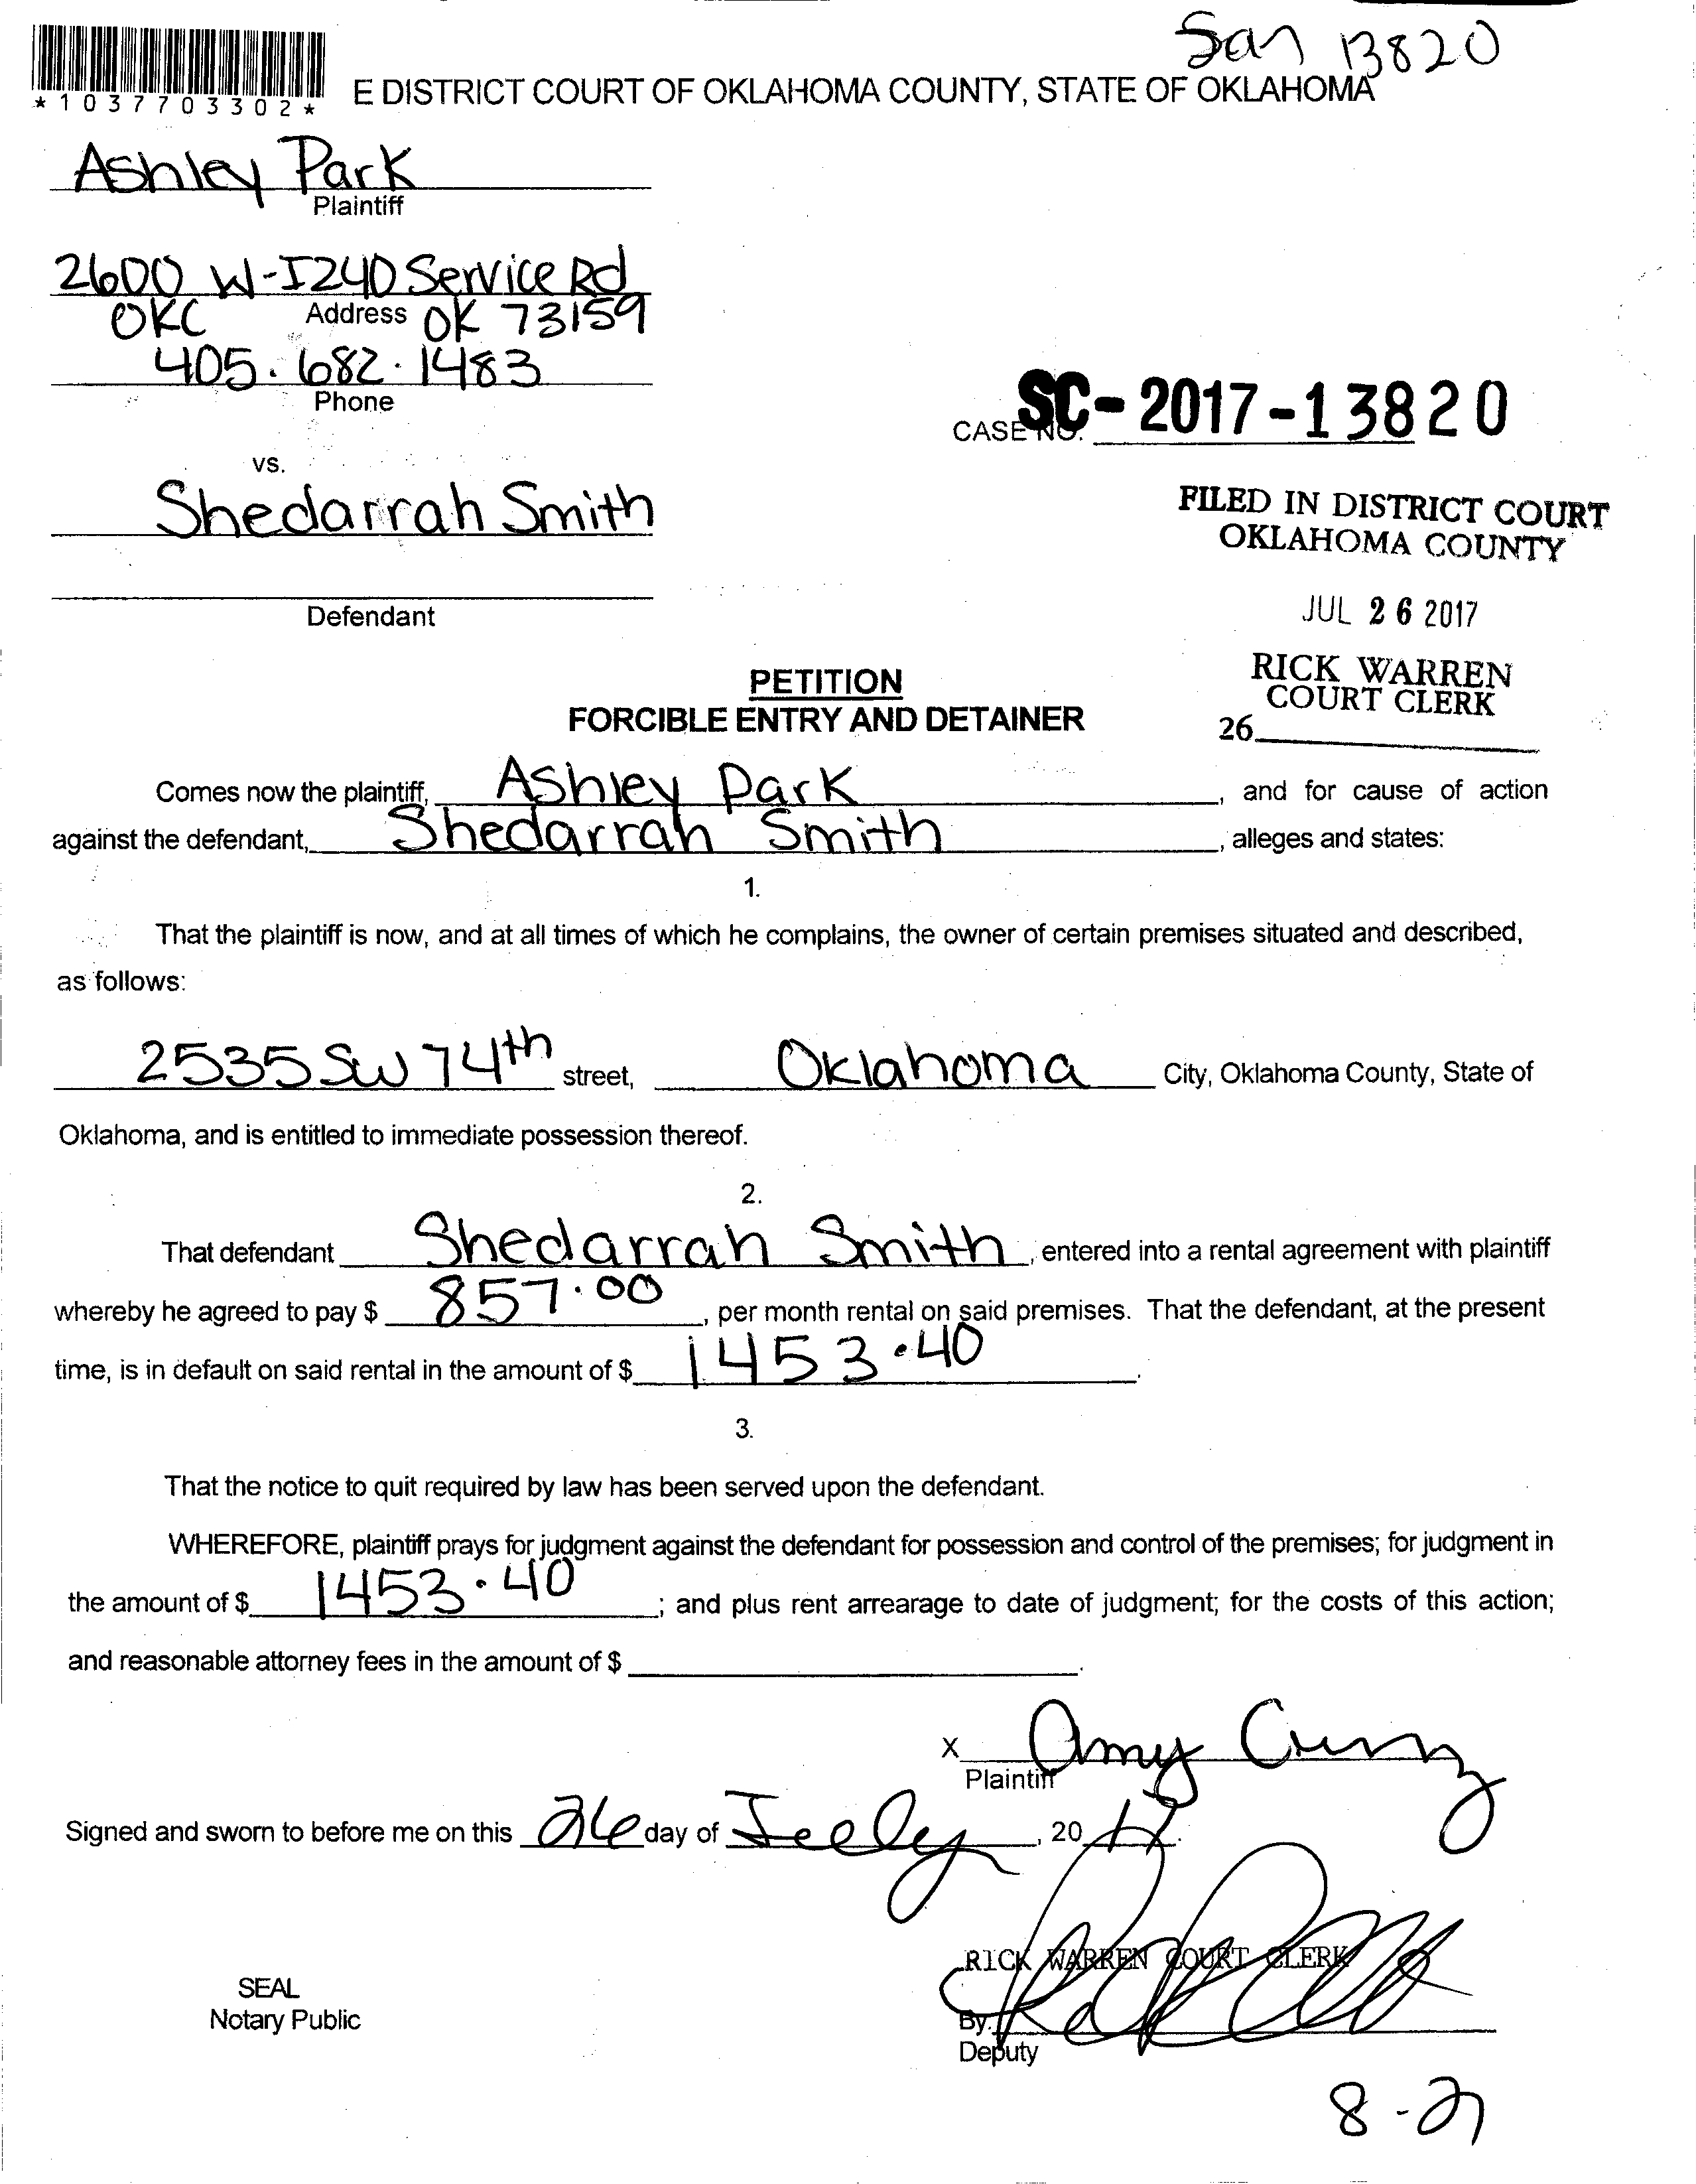 13820
*1037703302*
E DISTRICT COURT OF OKLAHOMA COUNTY, STATE OF OKLAHOMA
Ashley Park
Plaintiff
2600 W-I240 Service Rd
OKC Address OK 73159
405.682.1483
Phone
CASE NO. SC-2017-13820
vs.
Shedarrah Smith
FILED IN DISTRICT COURT
OKLAHOMA COUNTY
Defendant
JUL 26 2017
PETITION
FORCIBLE ENTRY AND DETAINER
RICK WARREN
COURT CLERK
26
Comes now the plaintiff, Ashley Park, and for cause of action
against the defendant, Shedarrah Smith, alleges and states:
1.
That the plaintiff is now, and at all times of which he complains, the owner of certain premises situated and described,
as follows:
2535 SW 74th street, Oklahoma City, Oklahoma County, State of
Oklahoma, and is entitled to immediate possession thereof.
2.
That defendant Shedarrah Smith, entered into a rental agreement with plaintiff
whereby he agreed to pay $ 857.00, per month rental on said premises. That the defendant, at the present
time, is in default on said rental in the amount of $ 1453.40.
3.
That the notice to quit required by law has been served upon the defendant.
WHEREFORE, plaintiff prays for judgment against the defendant for possession and control of the premises; for judgment in
the amount of $ 1453.40; and plus rent arrearage to date of judgment; for the costs of this action;
and reasonable attorney fees in the amount of $ .
X Amy
Plaintiff
Signed and sworn to before me on this 26 day of July, 2017.
RICK WARREN COURT CLERK
SEAL
Notary Public
By.
Deputy
8-